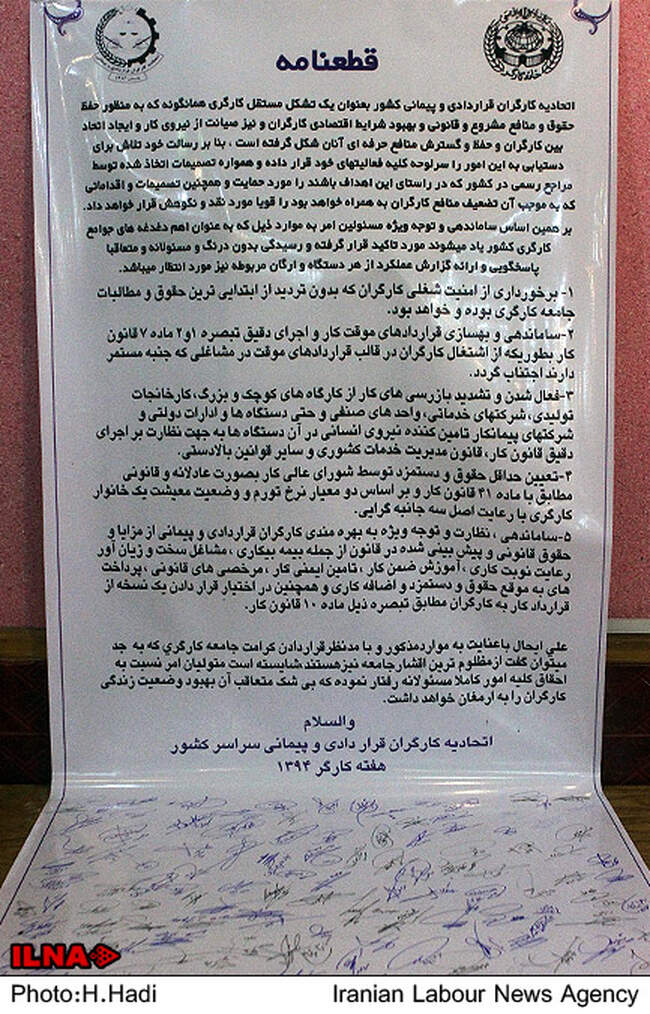 قطعنامه
اتحادیه کارگران قراردادی و پیمانی کشور بعنوان یک تشکل مستقل کارگری همانگونه که به منظور حفظ
حقوق و منافع مشروع و قانونی و بهبود شرایط اقتصادی کارگران و نیز صیانت از نیروی کار و ایجاد اتحاد
بین کارگران و حفظ و گسترش منافع حرفه ای آنان شکل گرفته است ، بنا بر رسالت خود تلاش برای
دستیابی به این امور را سرلوحه کلیه فعالیتهای خود قرار داده و همواره تصمیمات اتخاذ شده توسط
مراجع رسمی در کشور که در راستای این اهداف باشند را مورد حمایت و همچنین تصمیمات و اقداماتی
که به موجب آن تضعیف منافع کارگران به همراه خواهد بود را قویا مورد نقد و نکوهش قرار خواهد داد.
بر همین اساس ساماندهی و توجه ویژه مسئولین امر به موارد ذیل که به عنوان اهم دغدغه های جوامع
کارگری کشور یاد میشوند مورد تاکید قرار گرفته و رسیدگی بدون درنگ و مسئولانه و متعاقبا
پاسخگویی و ارائه گزارش عملکرد از هر دستگاه و ارگان مربوطه نیز مورد انتظار میباشد.
۱- برخورداری از امنیت شغلی کارگران که بدون تردید از ابتدایی ترین حقوق و مطالبات
جامعه کارگری بوده و خواهد بود.
۲-ساماندهی و بهسازی قراردادهای موقت کار و اجرای دقیق تبصره ۱و۲ ماده ۷ قانون
کار بطوریکه از اشتغال کارگران در قالب قراردادهای موقت در مشاغلی که جنبه مستمر
دارند اجتناب گردد.
۳-فعال شدن و تشدید بازرسی های کار از کارگاه های کوچک و بزرگ،کارخانجات
تولیدی، شرکتهای خدماتی، واحد های صنفی و حتی دستگاه ها و ادارات دولتی و
شرکتهای پیمانکار تامین کننده نیروی انسانی در آن دستگاه ها به جهت نظارت بر اجرای
دقیق قانون کار، قانون مدیریت خدمات کشوری و سایر قوانین بالادستی.
۴-تعیین حداقل حقوق و دستمزد توسط شورای عالی کار بصورت عادلانه و قانونی
مطابق با ماده ۴۱ قانون کار و بر اساس دو معیار نرخ تورم و وضعیت معیشت یک خانوار
کارگری با رعایت اصل سه جانبه گرایی.
۵-ساماندهی ، نظارت و توجه ویژه به بهره مندی کارگران قراردادی و پیمانی از مزایا و
حقوق قانونی و پیش بینی شده در قانون از جمله بیمه بیکاری ، مشاغل سخت و زیان آور
رعایت نوبت کاری ، آموزش ضمن کار ، تامین ایمنی کار ، مرخصی های قانونی ، پرداخت
های به موقع حقوق و دستمزد و اضافه کاری و همچنین در اختیار قرار دادن یک نسخه از
قرارداد کار به کارگران مطابق تبصره ذیل ماده ۱۰ قانون کار.
علی ایحال باعنایت به مواردمذکور و با مدنظرقراردادن کرامت جامعه کارگری که به جد
میتوان گفت ازمظلوم ترین اقشارجامعه نیزهستند،شایسته است متولیان امر نسبت به
احقاق کلیه امور کاملا مسئولانه رفتار نموده که بی شک متعاقب آن بهبود وضعیت زندگی
کارگران را به ارمغان خواهد داشت.
والسلام
اتحادیه کارگران قرار دادی و پیمانی سراسر کشور
هفته کارگر ۱۳۹۴
ILNA
Photo:H.Hadi
Iranian Labour News Agency